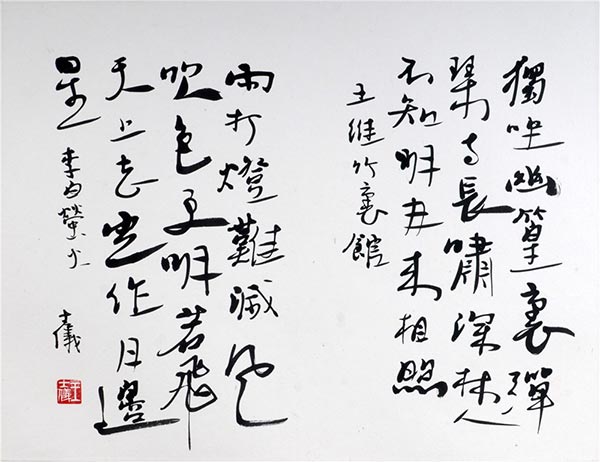 獨坐幽篁裏彈
琴復長嘯深林人
不知明月來相照
王維竹裏館
雨打燈難滅風
吹色更明若飛
天上去定作月邊
星 李白螢火
士儀
王士儀